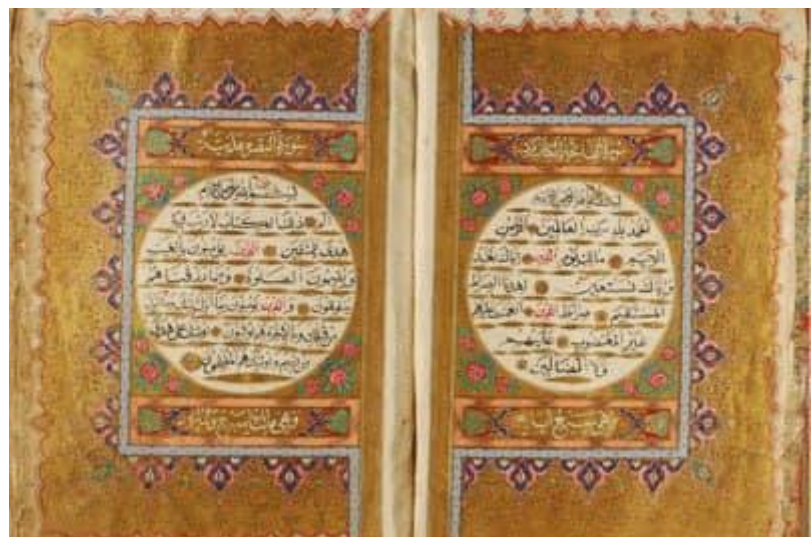 بسم الله الرحمن الرحيم
الحمد لله رب العالمين الرحمن
الرحيم مالك يوم الدين إياك نعبد
وإياك نستعين اهدنا الصراط
المستقيم صراط الذين أنعمت عليهم
غير المغضوب عليهم
ولا الضالين
وهي سبع آيات
سورة البقرة مدنية
بسم الله الرحمن الرحيم
الم ذلك الكتاب لا ريب فيه
هدى للمتقين الذين يؤمنون بالغيب
ويقيمون الصلوة ومما رزقناهم
ينفقون والذين يؤمنون بما أنزل إليك وما أنزل
من قبلك وبالآخرة هم يوقنون أولئك على هدى
من ربهم وأولئك هم المفلحون